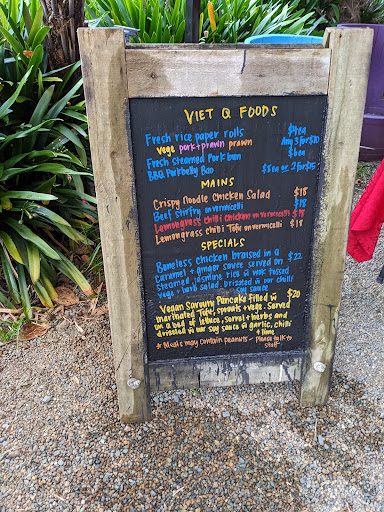 VIET Q FOODS
Fresh rice paper rolls $4ea
Vege pork+prawn prawn Any 3 for $10
Fresh Steamed Pork bun $6ea
BBQ Porkbelly Bao $8ea or 2 for $15
MAINS
Crispy Noodle Chicken Salad $18
Beef stirfry on vermicelli $18
Lemongrass chilli chicken on vermicelli $18
Lemongrass chilli Tofu on vermicelli $18
SPECIALS
Boneless chicken braised in a $22
caramel + ginger sauce served on
steamed jasmine rice w wok tossed
vege + herb salad. drizzled w our chilli
soy sauce
Vegan Savoury Pancake filled w $20
marinated Tofu, sprouts + vege. Served
on a bed of lettuce, sorrel + herbs and
drizzled w our soy sauce w garlic, chilli
+ lime
* Meals may contain peanuts - Please talk to
staff